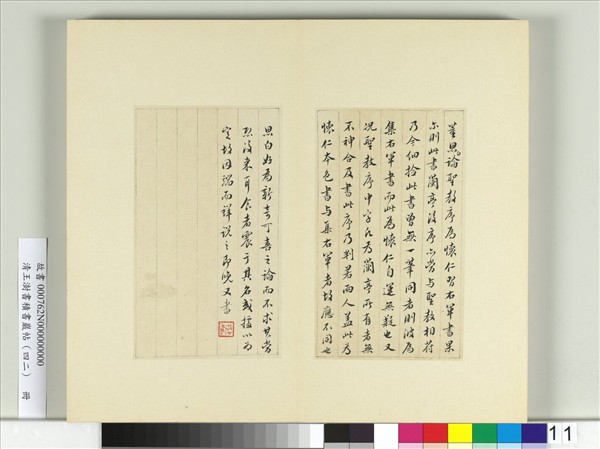 董思翁論聖教序為懷仁習右軍書果
尔則此書蘭亭後序亦當與聖教相符
乃今細拾此書曾無一筆同者則彼為
集右軍書而此為懷仁自運無疑也又
況聖教序中字凡為蘭亭所有者無
不神合及書此序乃判若兩人蓋此為
懷仁本色書與集右軍者故應不同也
思白好為新奇可喜之論而不求其當
然後來耳食者震于其名或據以為
定故因臨而詳說之即晚又書
故書 000762N000000000
清王澍書積書巖帖(四二) 冊
11